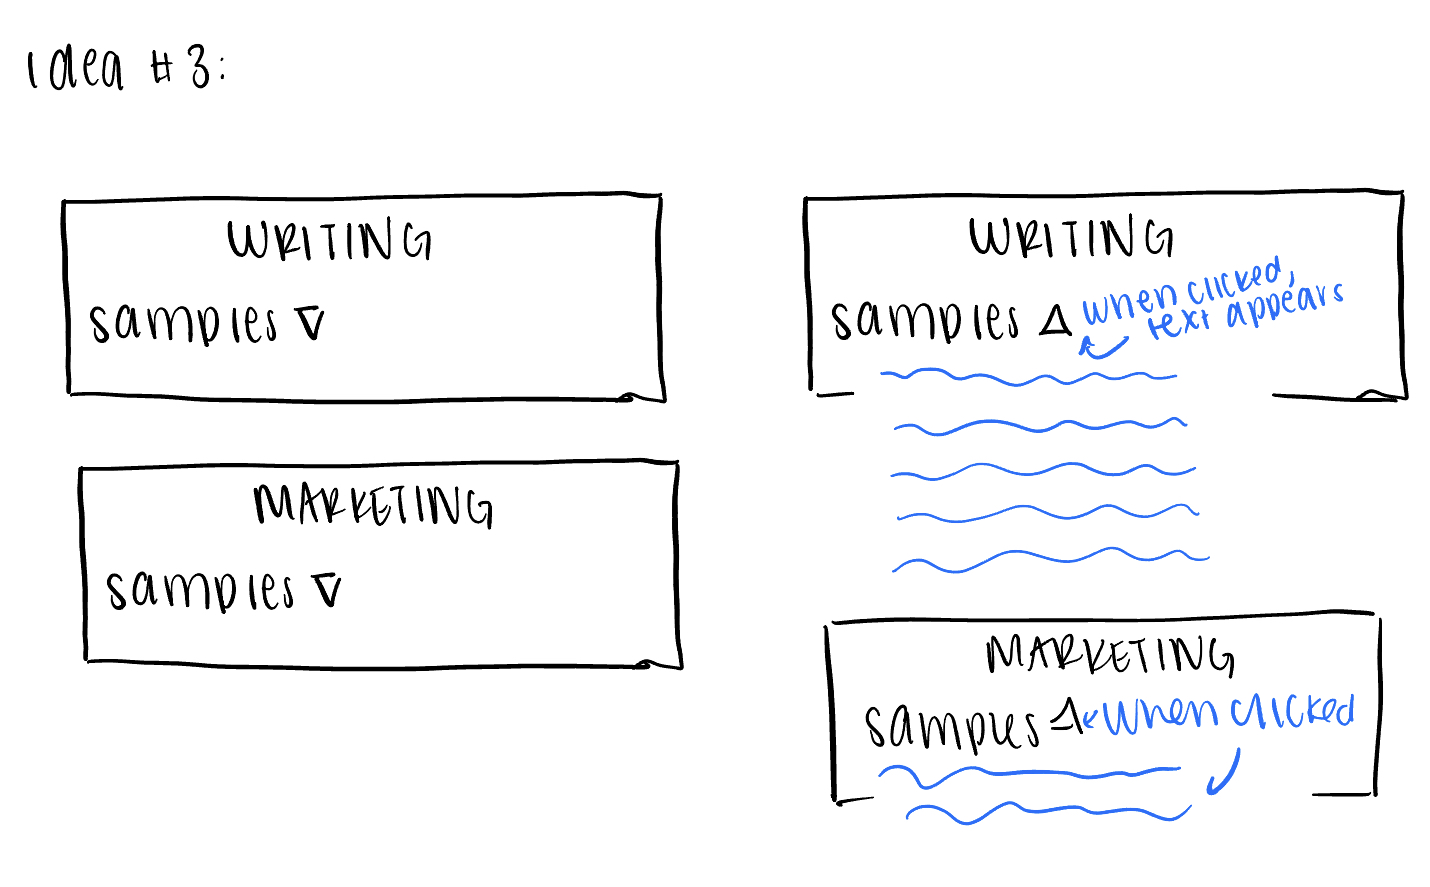 Idea #3:
WRITING
samples
MARKETING
samples
WRITING
samples
when clicked,
text appears
MARKETING
samples
when clicked